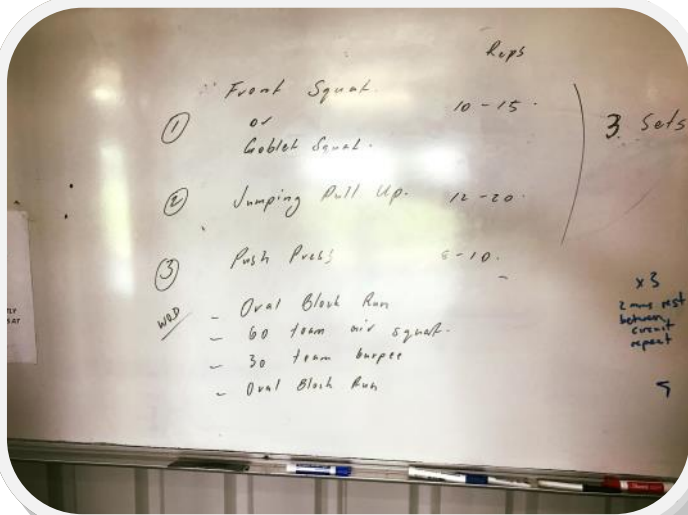 Reps
Front Squat. 10-15.
① or
Goblet Squat.
3 Sets
② Jumping Pull Up. 12-20.
③ Push Press 6-10.
WOD
- Oval Block Run
- 60 team air squat.
- 30 team burpee
- Oval Block Run
x3
2 mins rest
between
circuit
repeat